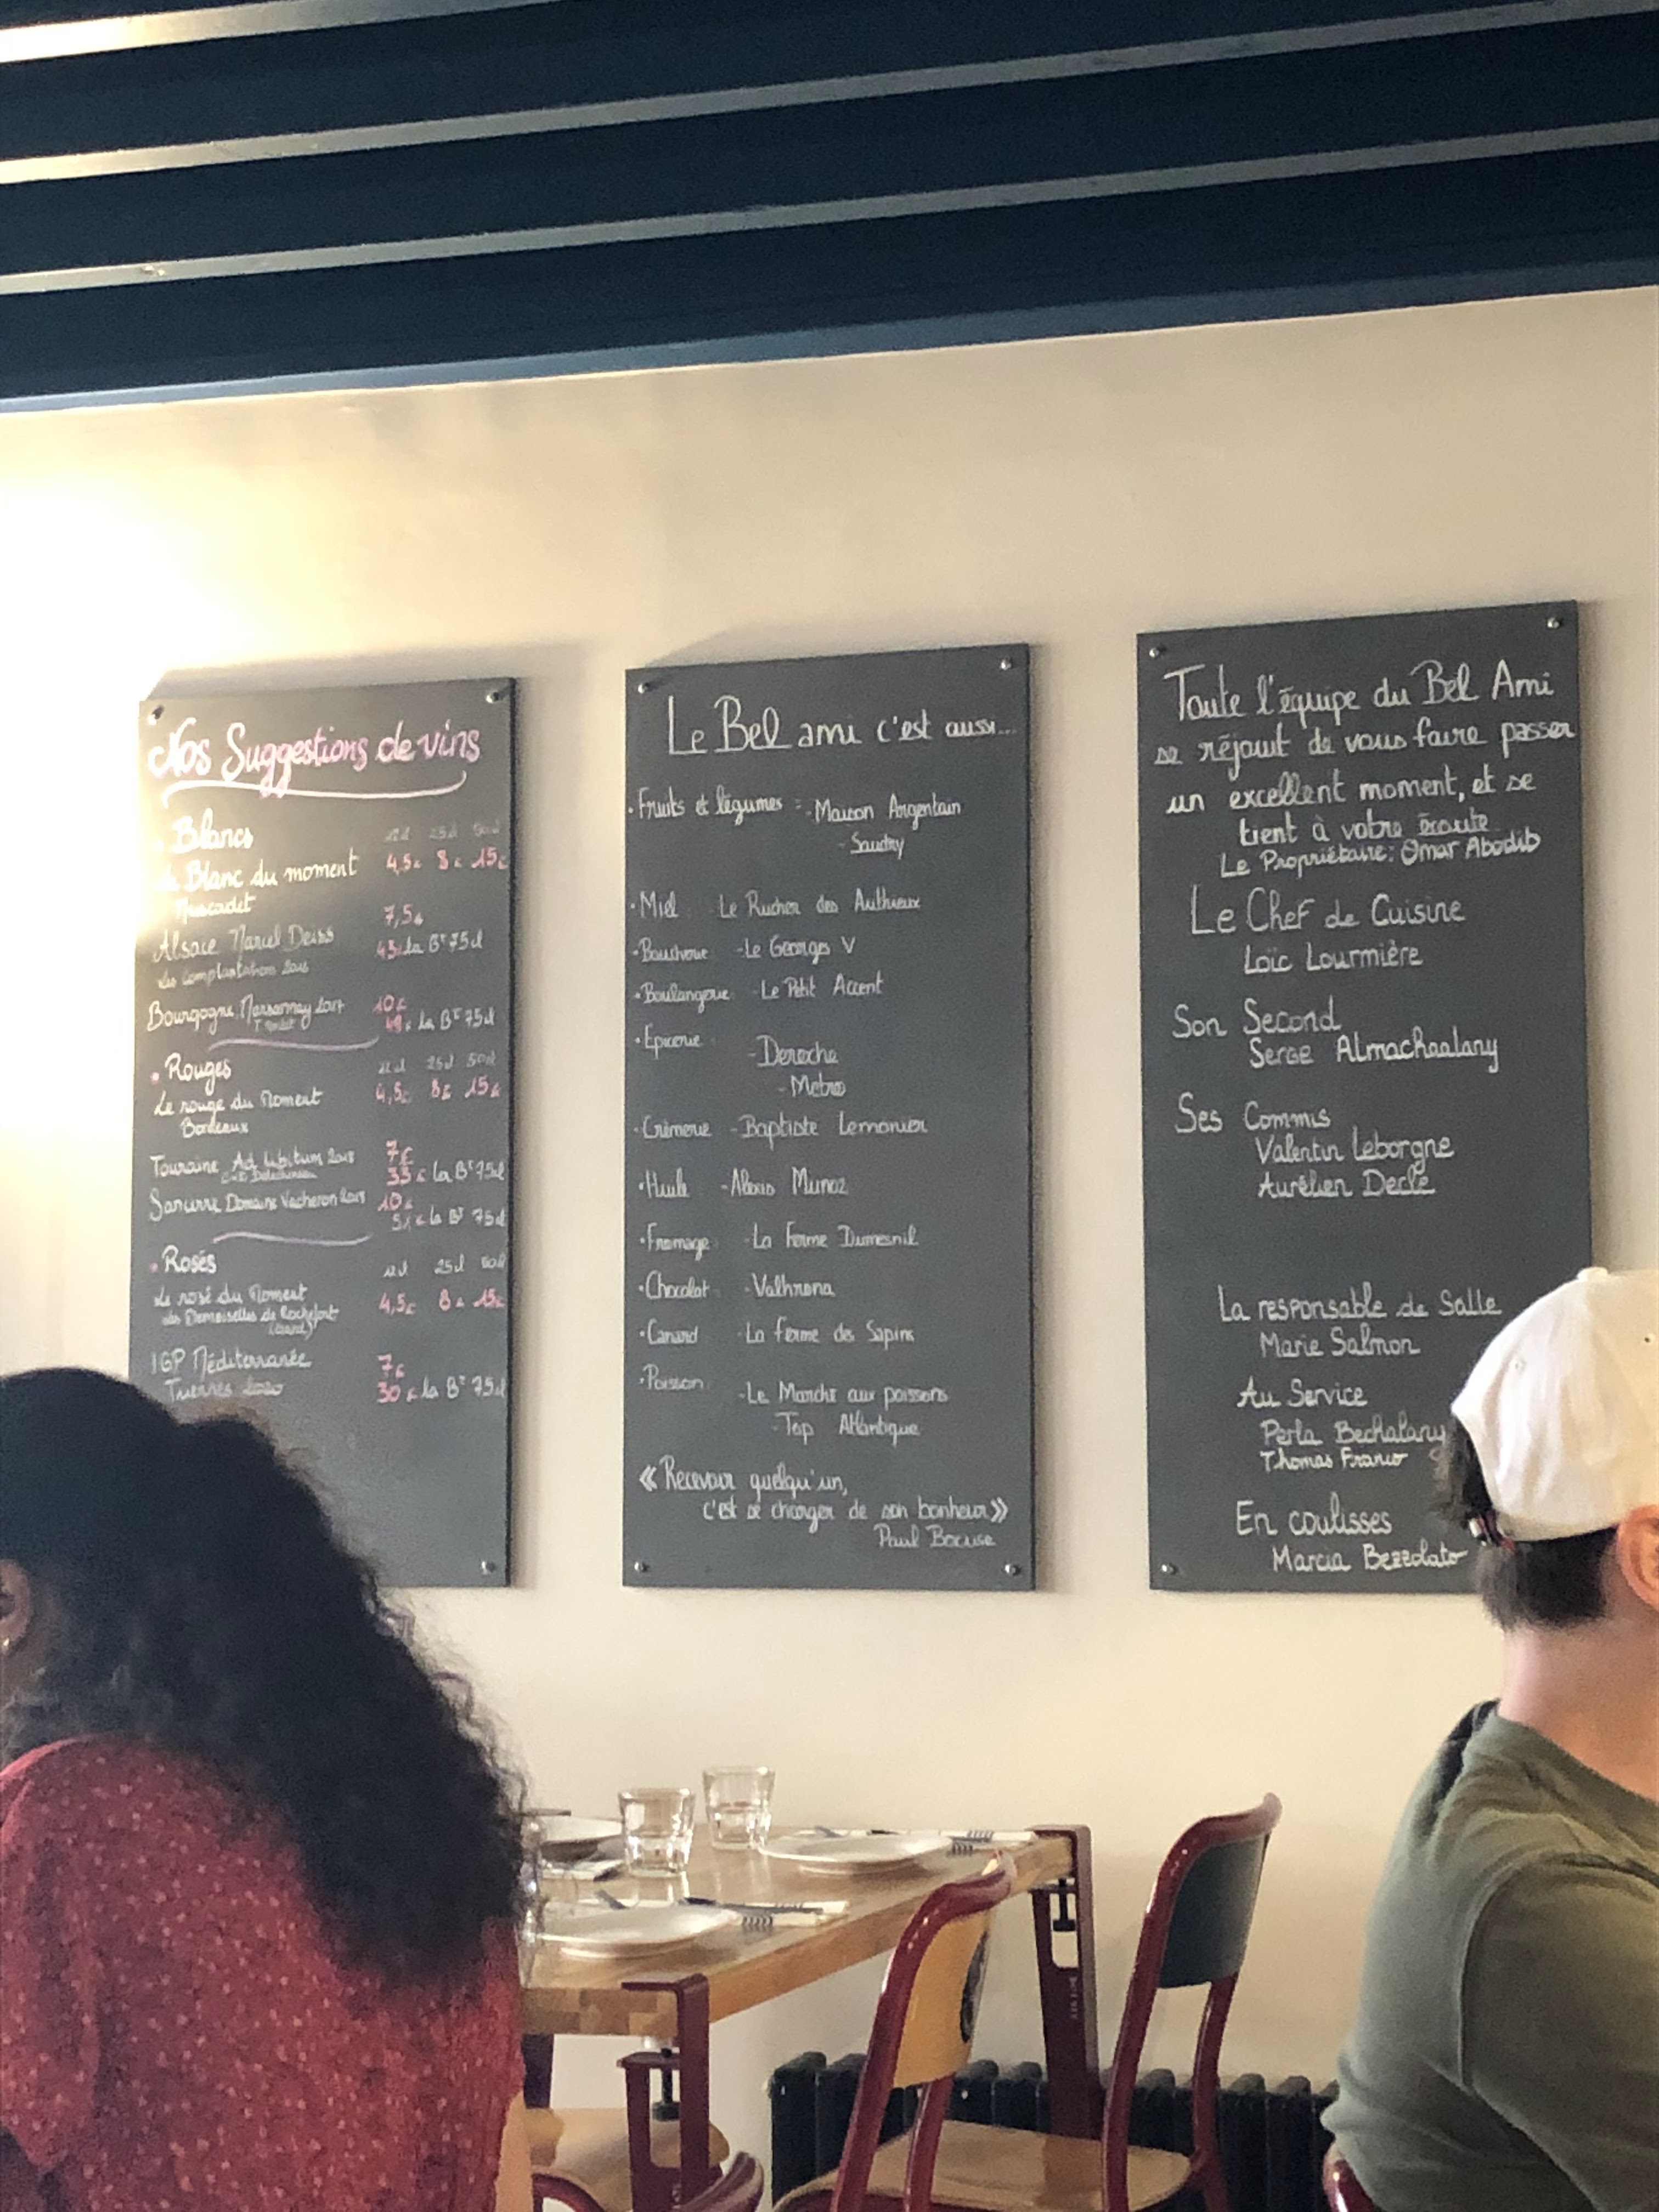 Nos Suggestions de vins
• Blancs 12cl 25cl 50cl
Le Blanc du moment 4,5€ 8€ 15€
Muscadet
Alsace Marcel Deiss 7,5€
45€ la Bt 75cl
Les Complantations
Bourgogne Marsannay 10€
49€ la Bt 75cl
• Rouges 12cl 25cl 50cl
Le rouge du Moment 4,5€ 8€ 15€
Bordeaux
Touraine Ad libitum 7€
33€ la Bt 75cl
Sancerre Domaine Vacheron 10€
51€ la Bt 75cl
• Rosés 12cl 25cl 50cl
Le rosé du Moment 4,5€ 8€ 15€
Les Demoiselles de Rochefort
IGP Méditerranée 7€
Triennes 2020 30€ la Bt 75cl
Le Bel ami c'est aussi...
• Fruits et légumes : - Maison Argentain
- Saudry
• Miel : - Le Rucher des Authieux
• Boucherie - Le Georges V
• Boulangerie - Le Petit Accent
• Epicerie
- Deroche
- Metro
• Crèmerie - Baptiste Lemonier
• Huile - Alexis Munoz
• Fromage - La Ferme Dumesnil
• Chocolat - Valhrona
• Canard - La ferme des Sapins
• Poisson
- Le Marché aux poissons
- Top Atlantique
« Recevoir quelqu'un,
c'est se charger de son bonheur »
Paul Bocuse
Toute l'équipe du Bel Ami
se réjouit de vous faire passer
un excellent moment, et se
tient à votre écoute
Le Propriétaire: Omar Abodib
Le Chef de Cuisine
Loïc Lourmière
Son Second
Serge Almachaalany
Ses Commis
Valentin Leborgne
Aurélien Decle
La responsable de Salle
Marie Salmon
Au Service
Perla Bechalany
Thomas Franco
En coulisses
Marcia Bezzolato